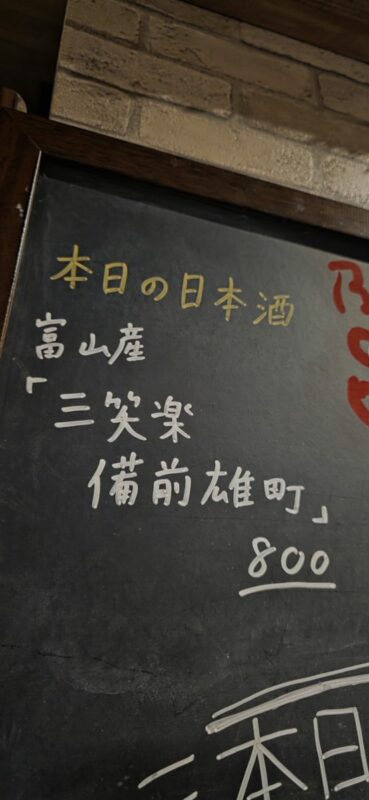 本日の日本酒
富山産
「三笑楽
備前雄町」
800
本日